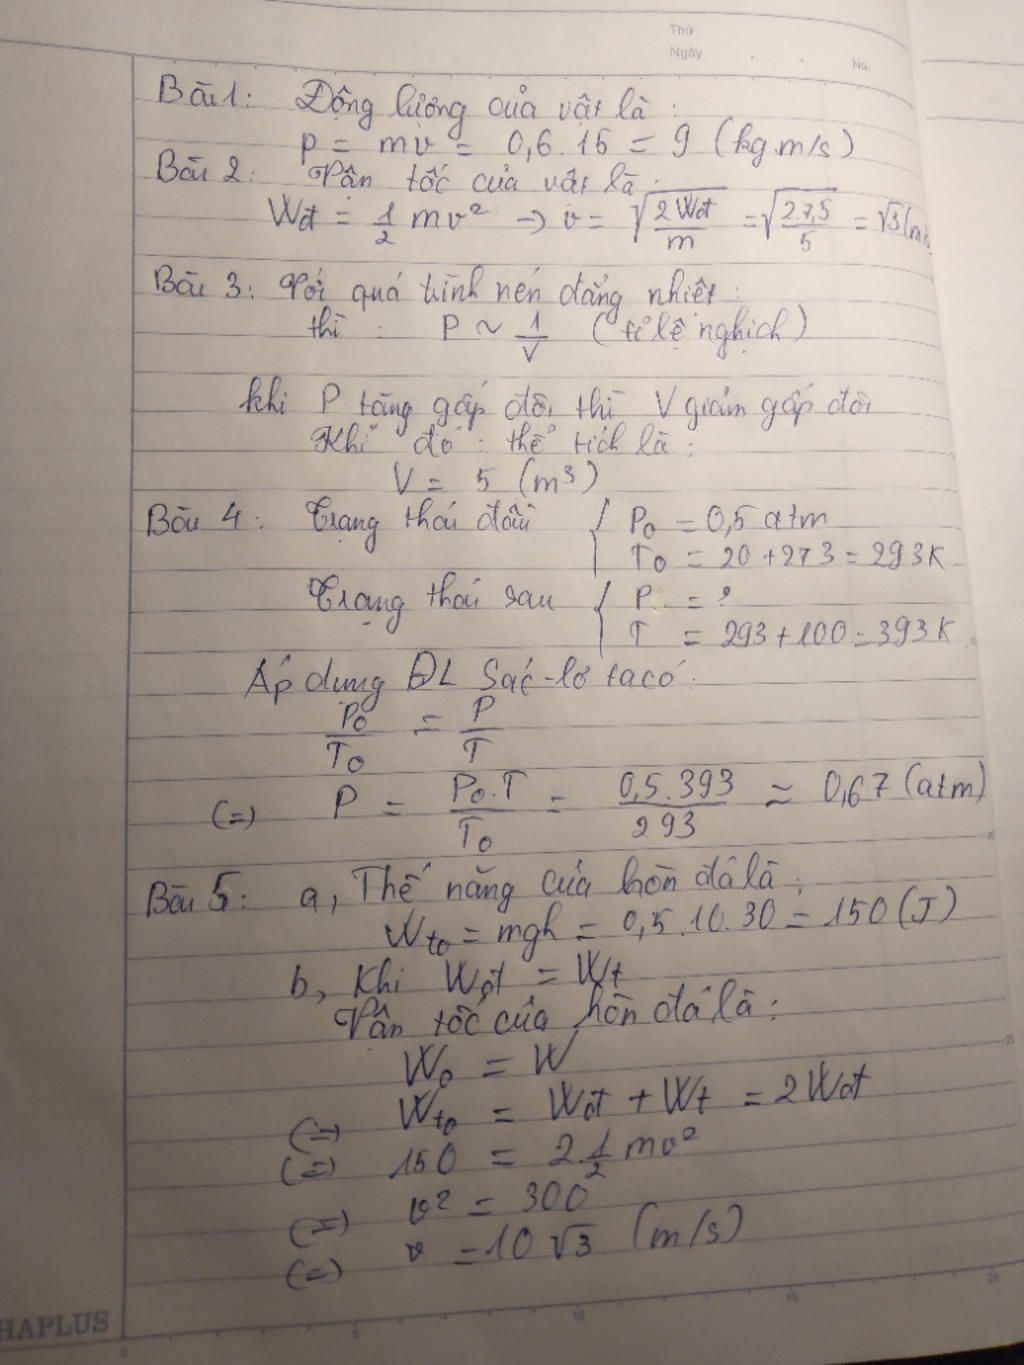 Thứ
Ngày
No.
Bài 1: Động lượng của vật là :
p = mv = 0,6 . 15 = 9 (kg.m/s)
Bài 2: Vận tốc của vật là :
Wđ = 1/2 mv² → v = √(2Wđ/m) = √(2.7,5/5) = √3 (m/s
Bài 3: Với quá trình nén đẳng nhiệt :
thì : P ~ 1/V (tỉ lệ nghịch)
khi P tăng gấp đôi thì V giảm gấp đôi
Khi đó : thể tích là :
V = 5 (m³)
Bài 4: Trạng thái đầu { P₀ = 0,5 atm
T₀ = 20 + 273 = 293K
Trạng thái sau { P = ?
T = 293 + 100 = 393K
Áp dụng ĐL Sác-lơ ta có :
P₀/T₀ = P/T
(=) P = P₀.T/T₀ = 0,5.393/293 ≈ 0,67 (atm)
Bài 5: a, Thế năng của hòn đá là :
Wt₀ = mgh = 0,5.10.30 = 150 (J)
b, Khi Wđ = Wt
Vận tốc của hòn đá là :
W₀ = W
(=) Wt₀ = Wđ + Wt = 2Wđ
(=) 150 = 2.1/2 mv²
(=) v² = 300
(=) v = 10√3 (m/s)
HAPLUS
0 5 10 15 20